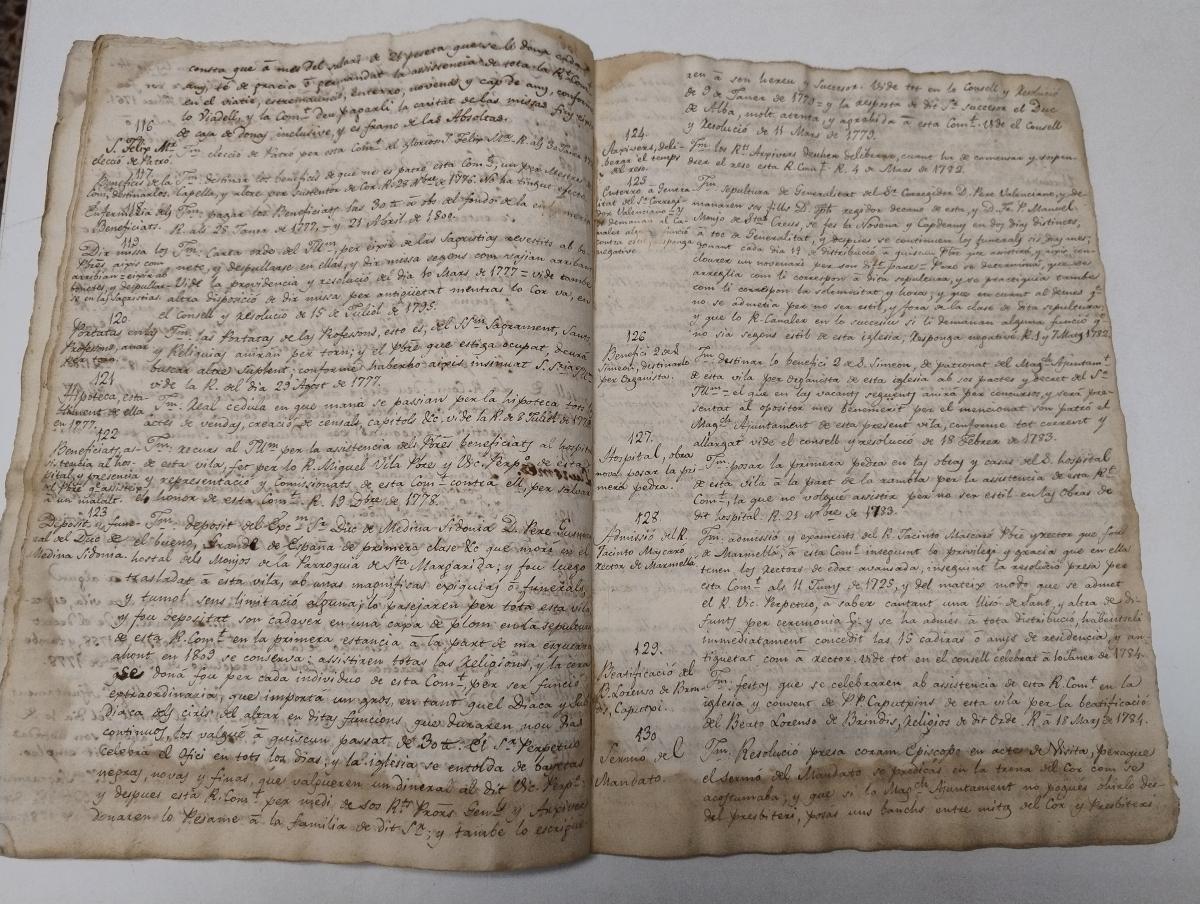 contra que à mes del salari de 21 peseta que se li dona cada
any, te de gracia ò gratuidat la assistencia de tota la Rt. Comt.
en el viatic, extremaunció, enterro, novena, y cap de any, conforme
lo Viadelly, y la Comt. deu pagarli la caritat de las missas fins
de caja de donas inclusive, y es franc de las Absoltas.
116
S. Felip Mr. elecció de Patró.
Tm. elecció de Patró per esta Comt. al glorios S. Felip
117
Beneficis de la Com, destinarlos
Tm. destinar los beneficis de que es patró esta Comt, un per Mestre de
Capella, y altre per Sustentor de Cor. R. 28 Nbre. de 1776. No ha tingut efecte
118
Enfermeria dels Beneficiats.
Tm. pagar los Beneficiats las 30 ab. del fondo de la enfermeria
R. als 25 Janer de 1777, y 21 Abril de 1800.
119
Dir missa los Pbres aixis com arriban
Tm. Carta orde del Illm, per exir de las Sagristias revestits ab lo
bonete, y despullarse en ellas, y dir missa segons com vajian arriban
Vide la providencia y resolució del dia 10 Mars de 1777 = vide tambe
altra disposició de dir missa per antigüetat mentras lo Cor va, en
el Consell y resolució de 15 de Juliol de 1795.
120
Portatas en las Profesons, anar per torn.
Tm. las Portatas de las Profesons, esto es, del SSm. Sagrament, Sants,
y Reliquias aniran per torn; y el Pbre que estiga ocupat, deura
buscar altre Suplent; conforme haberho aixis insinuat
vide la R. del dia 29 Agost de 1777.
121
Hipoteca, establiment de ella en 1777.
Tm. Real cedula en que mana se passian per la hipoteca tots los
actes de vendas, creació de censals, capitols &c. vide la R. de 8 Juliol de 1778
122
Beneficiats, asistencia al hospital
Tm. recurs al Illm. per la assistencia dels Pbres beneficiats al hospital
de esta vila, fet per lo R. Miquel Vila Pbres y Vic. Perpo. de esta
y presencia y representació y Comissionats de esta Comt. contra ell, per salvar
el honor de esta Comt. R. 19 Dbre. de 1778.
123
Deposit y funeral del Duc de Medina Sidonia.
Tm. deposit del Exc.m Sr. Duc de Medina Sidonia D. Pere Gusman
el bueno, Grande de España de primera clase &c que morí en el
hostal dels Monjos de la Parroquia de Sta. Margarida; y fou luego
trasladat à esta vila, ab unas magnificas exiquias ò funerals,
y tumol sens limitació alguna; lo pasejaren per tota esta vila,
y fou depositat son cadaver en una capa de plom en la sepultura
de esta R. Comt. en la primera estancia à la part de ma esquerra
ahont en 1809 se conserva: assistiren totas las Religions, y la cera
se dona fou per cada individuo de esta Comt, per ser funció
extraordinaria, ques importà un gros, en tant quel Diaca y sub-
Diaca dels ciris del altar, en ditas funcions, que duraren nou dias
continuos, los valguè à quiscun passat de 30. El Sr. Perpetuo
celebrà el Ofici en tots los dias; y la iglesia se entoldà de bayetas
negras, novas y finas, que valgueren un dineral al dit Vic. Perpt.
y despues esta R. Comt. per medi de sos Rts. Prors. Genls. y Arxivers
donaren lo Pesame à la familia de dit Sr; y també lo escrigué
ren à son hereu y Successor. Vide tot en lo Consell y Resolució
de 9 de Janer de 1779 = y la resposta de dit Sr. successor el Duc
de Alba, molt atenta, y agrahida à esta Comt. Vide el Consell
y Resolució de 11 Mars de 1779.
124.
Arxivers, delibaran el temps del reso.
Tm. los Rts. Arxivers deuhen deliberar, cuant ha de comensar y suspendrer
el reso esta R. Comt. R. 4 de Mars de 1782.
125
Enterro à Generalitat del Sr. Corregidor Valenciano
Tm. Sepultura de Generalitat del Sr. Corregidor D. Pere Valenciano, y demanaren
sos fills D. Jph. regidor decano de esta, y D. Fr. P. Manuel
Monjo de Stas. Creus, se fes la Novena y Capdeany en dos dias distincts,
à toc de Generalitat, y despues se continuen los funerals sis dias mes;
donant cada dia de distribució à quiscun Pbre que assistirà, y aixis conclourer
un novenari per son Dft. pare = Pero se determinà, que se
arreglia com li correspon à dita sepultura, y se practiquia tambe
com li correspon la solemnitat, y horas; y que en cuant al demes
no se admetia per no ser estil, y fora la clase de esta sepultura,
y que lo R. Canaler en lo successiu si li demanan alguna funció
no sia segons estil de esta iglesia, Responga negative. R. 1 y 7 Maig 1782.
126
Benefici 2 de S. Simeon, destinarlo per Organista.
Tm. destinar lo benefici 2 de S. Simeon, de patronat del Magch. Ajuntamt.
de esta vila per Organista de esta iglesia ab sos pactes y decret del Sr.
Illm. = el que en las vacants seguents anirà per concursos, y serà presentat
al opositor mes benemerit per el mencionat son patró el
Magch. Ajuntament de esta present vila, conforme tot corrent y
allargat vide el consell y resolució de 18 Febrer de 1783.
127.
Hospital, obras novas, posar la primera pedra.
Tm. posar la primera pedra en las obras y casas del S. hospital
de esta vila à la part de la rambla per la assistencia de esta Rt.
Comt, la que no volgué assistir per no ser estil en las Obras de
dit hospital. R. 21 Nbre de 1783.
128
Admissió del R. Jacinto Mascaró rector de Marmellá.
Tm. admissió y examens del R. Jacinto Mascaró Pbre y rector que fou
de Marmellà, à esta Comt. inseguint lo privilegi y gracia que en ella
tenen los Rectors de edat avansada, inseguint la resolució presa per
esta Comt. als 11 Juny de 1725, y del mateix modo que se admet
el R. Vic. Perpetuo, à saber cantant una llisó de Sant, y altra de Difunts
per ceremonia; y se ha admés à tota distribució, habentseli
immediatament concedit las 15 cadiras ò amichs de residencia, y antiguetat
com à rector. Vide tot en el consell celebrat à 10 Janer de 1784.
129.
Beatificació del B. Lorenso de Brindis, Caputxi.
Tm. festas que se celebraren ab assistencia de esta R. Comt. en la
iglesia y convent de PP. Caputxins de esta vila per la beatificació
del Beato Lorenso de Brindis, Religios de dit Orde. R. à 18 Maig de 1784.
130
Sermo del Mandato.
Tm. Resolució presa coram Episcopo en actes de Visita, peraque
el sermó del Mandato se predicàs en la trona del Cor com se
acostumaba; y que si la Magch. Ajuntament no pogues ohirlo des
del presbiteri, posas uns banchs entre mitg del Cor y Presbiteri